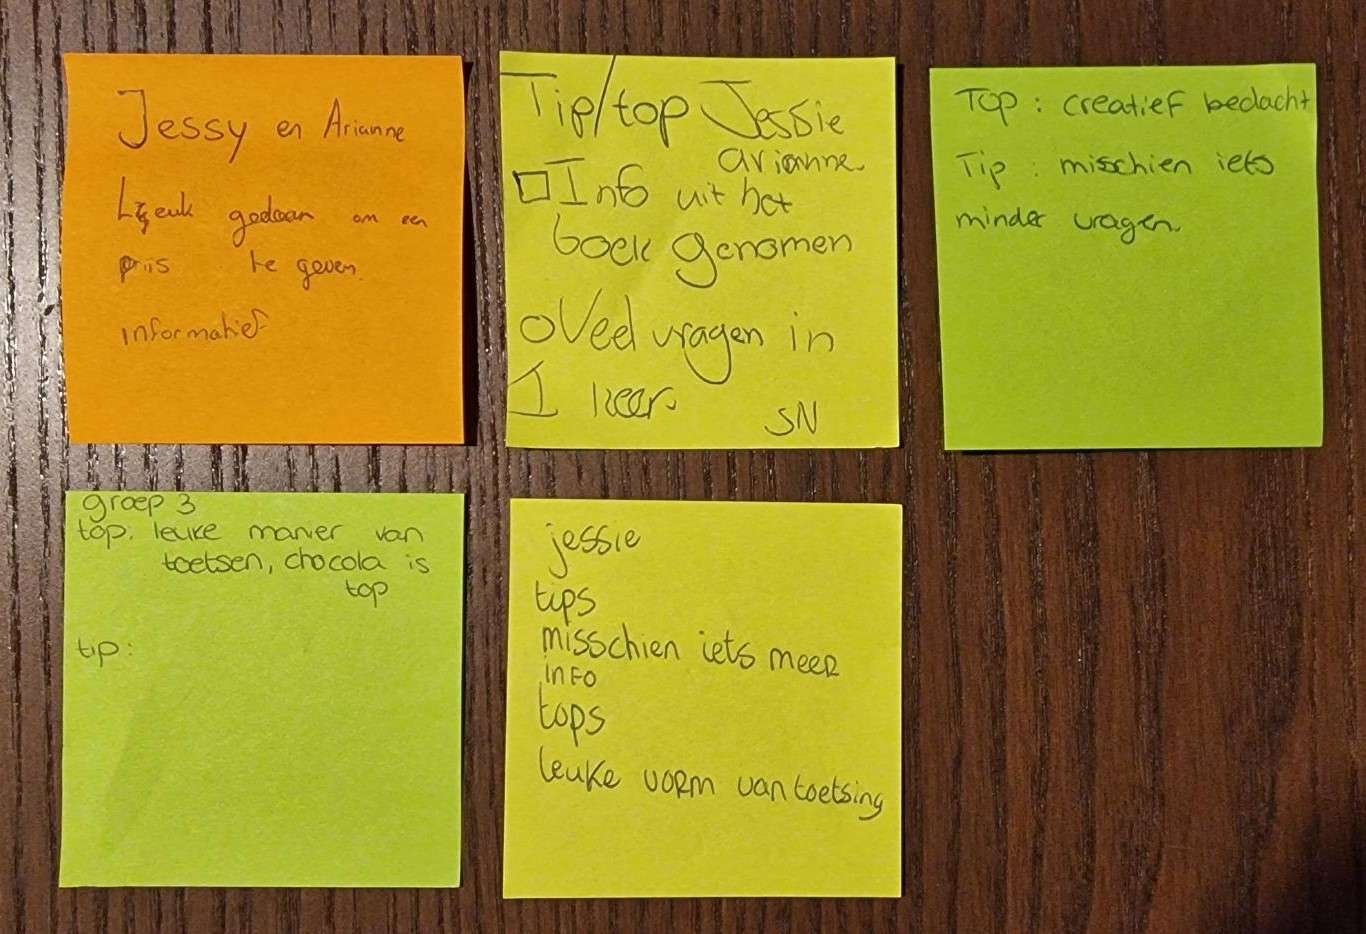 Jessy en Arianne
Leuk gedaan om een
prijs te geven.
informatief
Tip/top Jessie
arianne
Info uit het
boek genomen
Veel vragen in
1 keer
SN
Top : creatief bedacht
Tip : misschien iets
minder vragen.
groep 3
top: leuke manier van
toetsen, chocola is
top
tip:
jessie
tips
misschien iets meer
info
tops
leuke vorm van toetsing